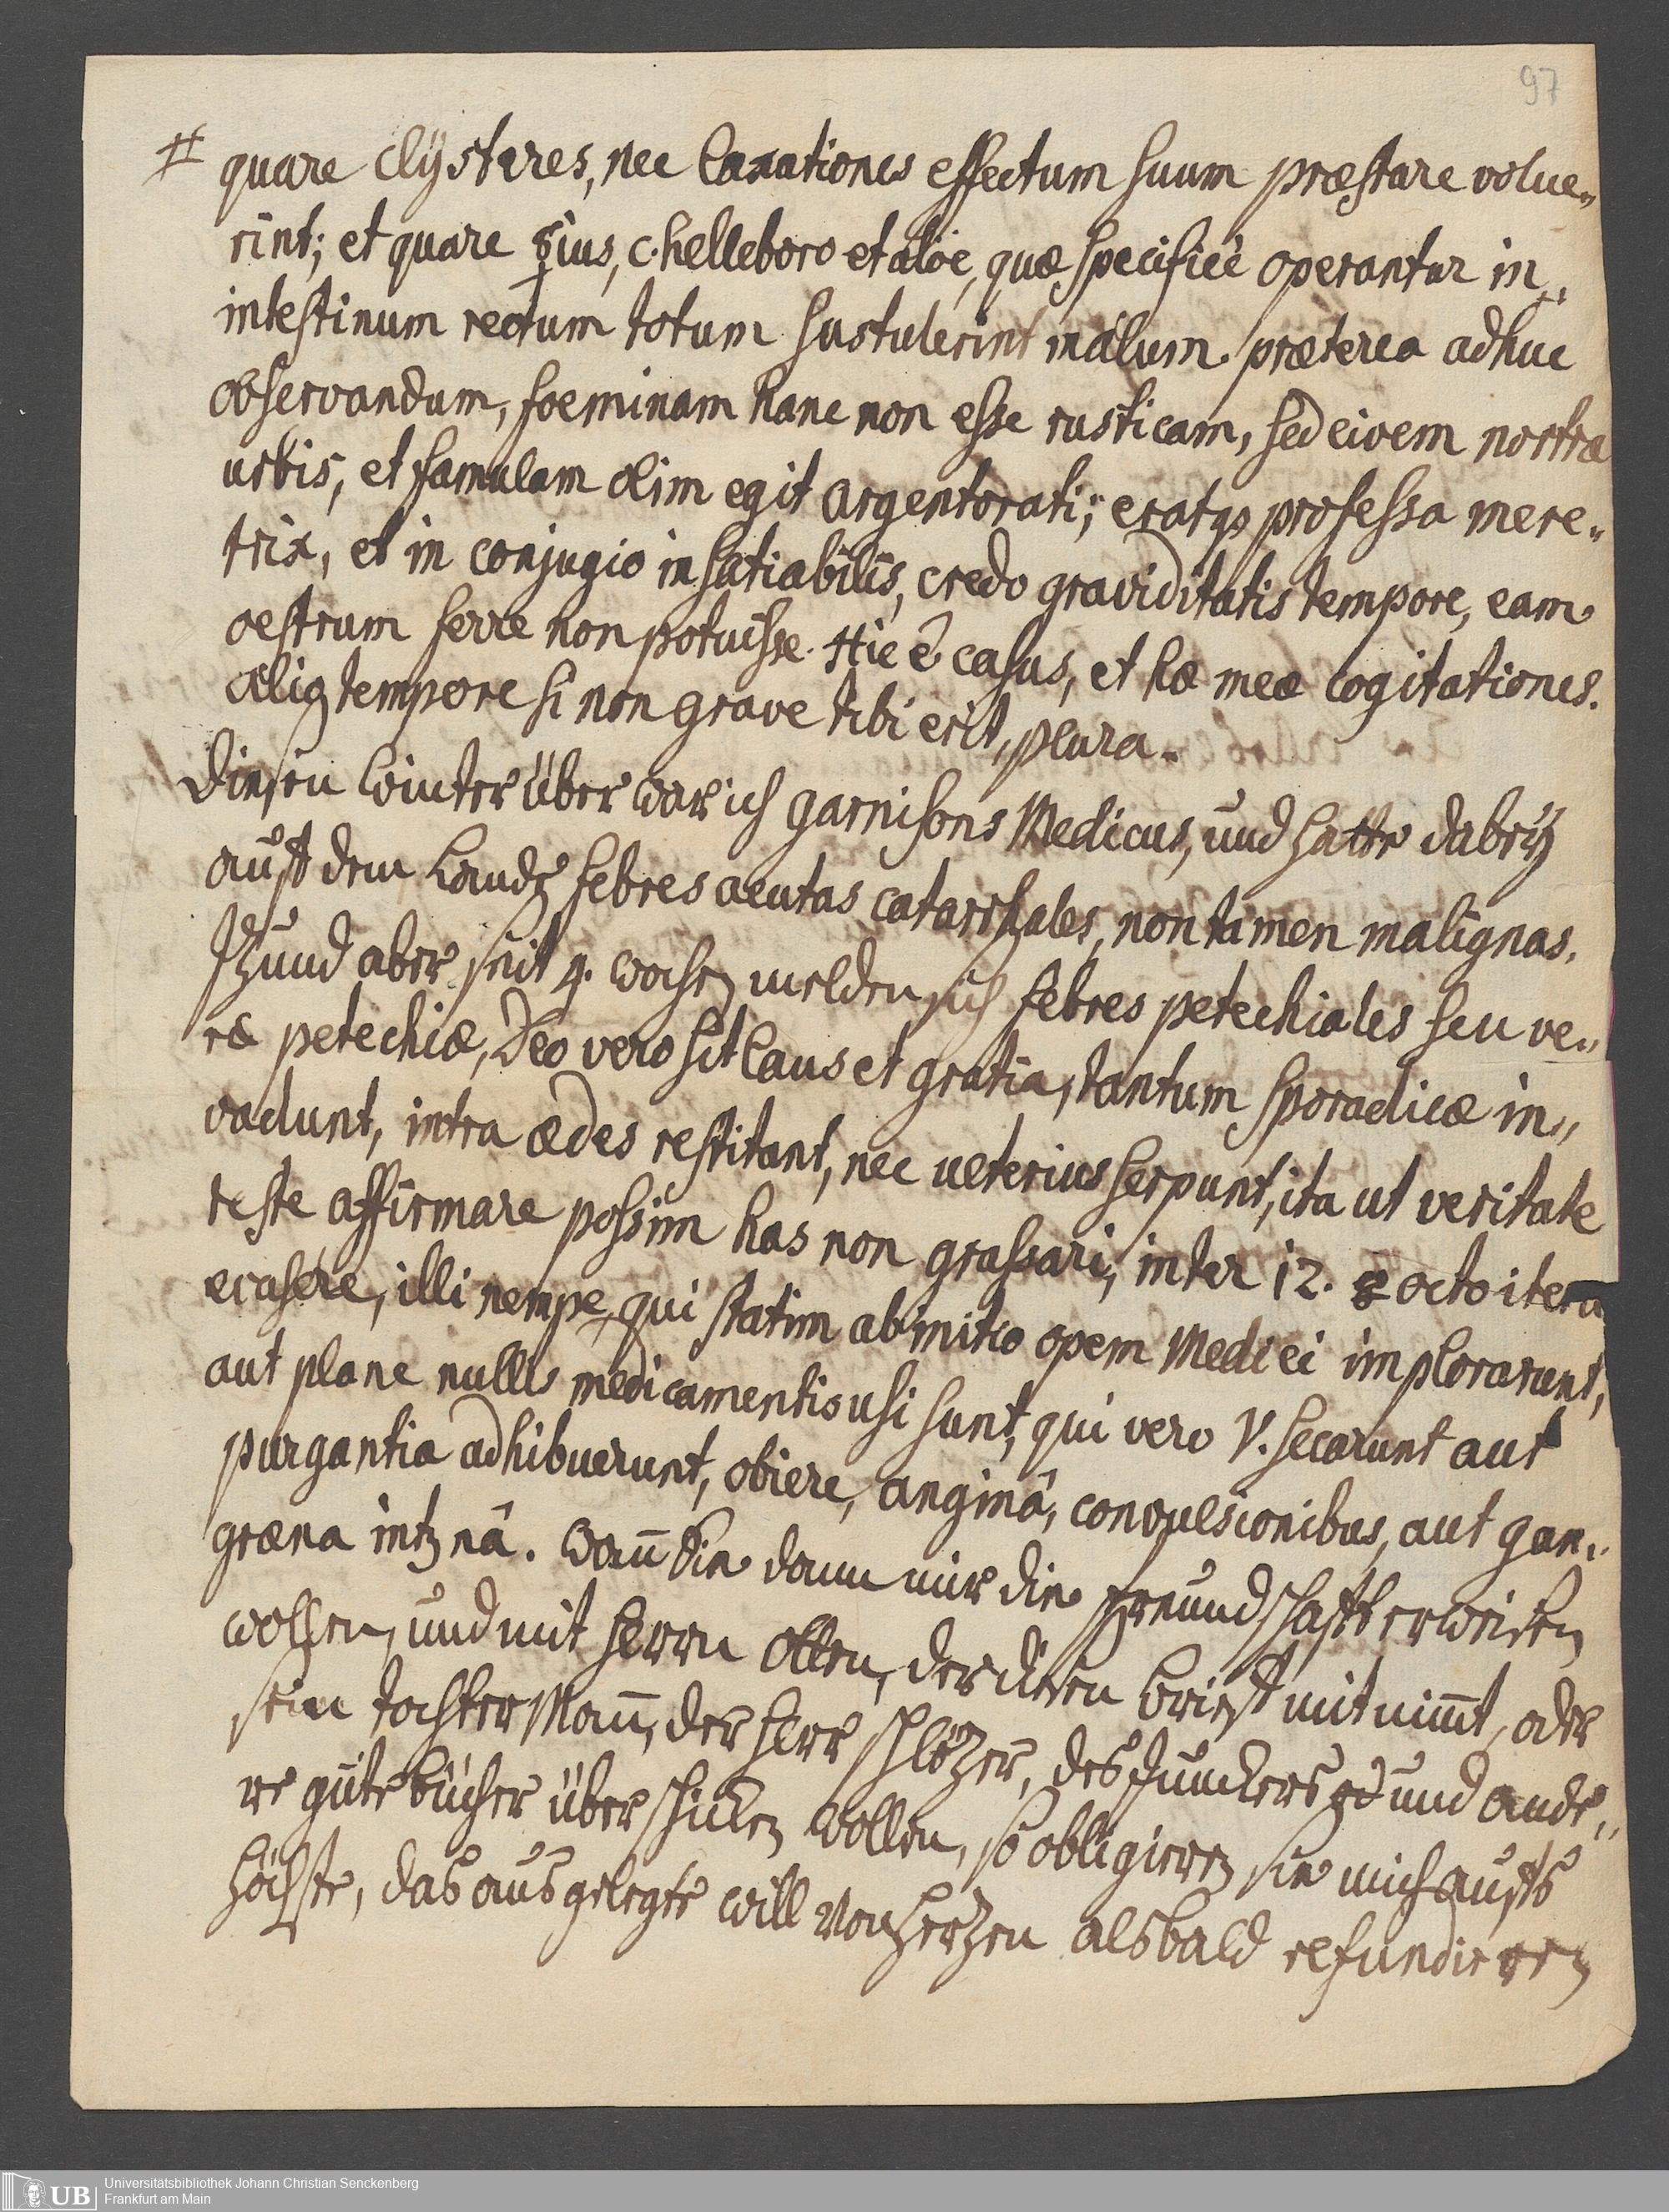 97
# quare Clÿsteres, nec laxationes effectum suum præstare volue„
rint; et quare ☿ius, c. helleboro et aloë, quæ specificè operantur in„
intestinum rectum totum sustulerint malum. præterea adhuc
observandum, foeminam hanc non esse rusticam, sed civem nostræ
urbis, et famulam olim egit Argentorati; eratqȝ professa mere„
trix, et in conjugio insatiabilis, credo graviditatis tempore, eam
oestrum ferre non potuisse. Hic ê casus, et hæ meæ cogitationes.
aliȝ tempore si non grave tibi erit, plura.
Diesen Winter über war ich garnisons Medicus, und hatte dabeÿ
auff dem Lande febres acutas catarrhales, non tamen malignas.
Itzund aber seit 4. wochen melden sich febres petechiales seu ve„
ræ petechiæ, Deo vero sit laus et gratia, tantum sporadicæ in„
vadunt, intra ædes restitant, nec ulterius serpunt, ita ut veritate
teste affirmare possim has non grassari, inter 12. octo itera
evasere, illi nempe, qui statim ab initio opem Medici implorarunt,
aut plane nullis medicamentis usi sunt, qui vero V. secarunt aut
purgantia adhibuerunt, obiere, anginâ, convulsionibus, aut gan„
græna intȝnâ. Wañ Sie dann mir die freundschafft erweisen
wollen, und mit Herrn Ollen, der diesen brieff mit nim̄t, oder
sein tochter Mañ, der Herr Schlözer, des Junckers und ande„
re gute bücher über schicken wollen, so obligieren sie mich auffs
höchste, das ausgelegte will von Hertzen alsbald refundieren
Universitätsbibliothek Johann Christian Senckenberg
Frankfurt am Main
UB